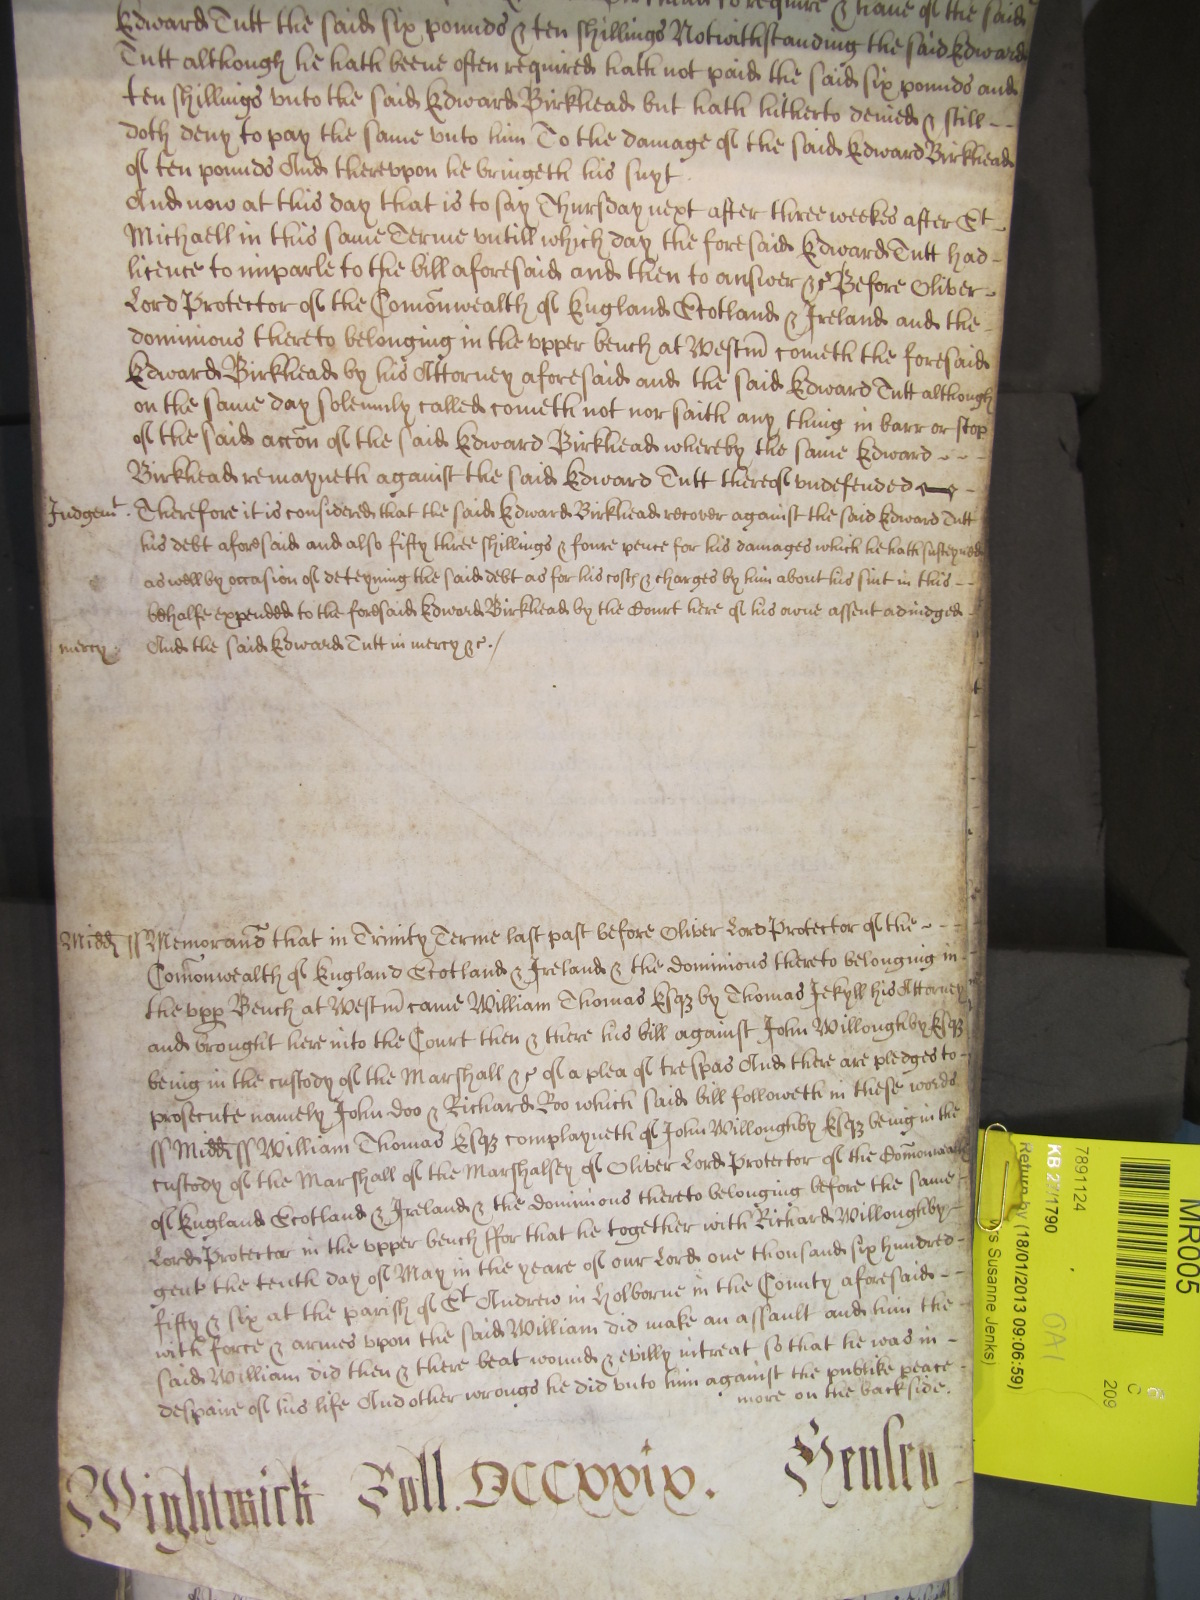 to require & have of the said
Edward Tutt the said six pounds & ten shillings Notwithstanding the said Edward
Tutt although he hath beene often required hath not paid the said six pounds and
ten shillings vnto the said Edward Birkhead but hath hitherto denied & still --
doth deny to pay the same vnto him To the damage of the said Edward Birkhead
of ten pounds And therevpon he bringeth his suyt .
And now at this day that is to say Thursday next after three weekes after St
Michaell in this same Terme vntill which day the foresaid Edward Tutt had -
licence to imparle to the bill aforesaid and then to answer &c Before Oliver -
Lord Protector of the Comonwealth of England Scotland & Ireland and the -
dominions thereto belonging in the vpper bench at Westm cometh the foresaid
Edward Birkhead by his Attorney aforesaid and the said Edward Tutt although
on the same day solemnly called cometh not nor saith any thing in barr or stop
of the said accon of the said Edward Birkhead whereby the same Edward - - -
Birkhead remayneth against the said Edward Tutt thereof vndefended -
Judgemt . Therefore it is considered that the said Edward Birkhead recover against the said Edward Tutt
his debt aforesaid and also fifty three shillings & foure pence for his damages which he hath susteyned
as well by occasion of deteyning the said debt as for his costs & charges by him about his suit in this --
behalfe expended to the foresaid Edward Birkhead by the Court here of his owne assent adiudged -
mercy . And the said Edward Tutt in mercy &c . /
Midd ss Memorand that in Trinity Terme last past before Oliver Lord Protector of the - - -
Comonwealth of England Scotland & Ireland & the dominions thereto belonging in
the vpp Bench at Westm came William Thomas Esqz by Thomas Jekyll his Attorney
and brought here into the Court then & there his bill against John Willoughby Esqz
being in the custody of the Marshall &c of a plea of trespas And there are pledges to -
prosecute namely John Doo & Richard Roo which said bill followeth in these words
ss Midd ss William Thomas Esqz complayneth of John Willoughby Esqz being in the
custody of the Marshall of the Marshalsey of Oliver Lord Protector of the Comonwealth
of England Scotland & Ireland & the dominions thereto belonging before the same
Lord Protector in the vpper bench ffor that he together with Richard Willoughby
gent the tenth day of May in the yeare of our Lord one thousand six hundred -
fifty & six at the parish of St Andrew in Holborne in the County aforesaid --
with force & armes vpon the said William did make an assault and him the
said William did then & there beat wound & evilly intreat so that he was in -
despaire of his life And other wrongs he did vnto him against the publike peace
more on the backside.
Wightwick Roll. DCCxxix. Henley
MR005
7891124
KB 27/1790
Return by (18/01/2013 09:06:59)
s Susanne Jenks)
209
C